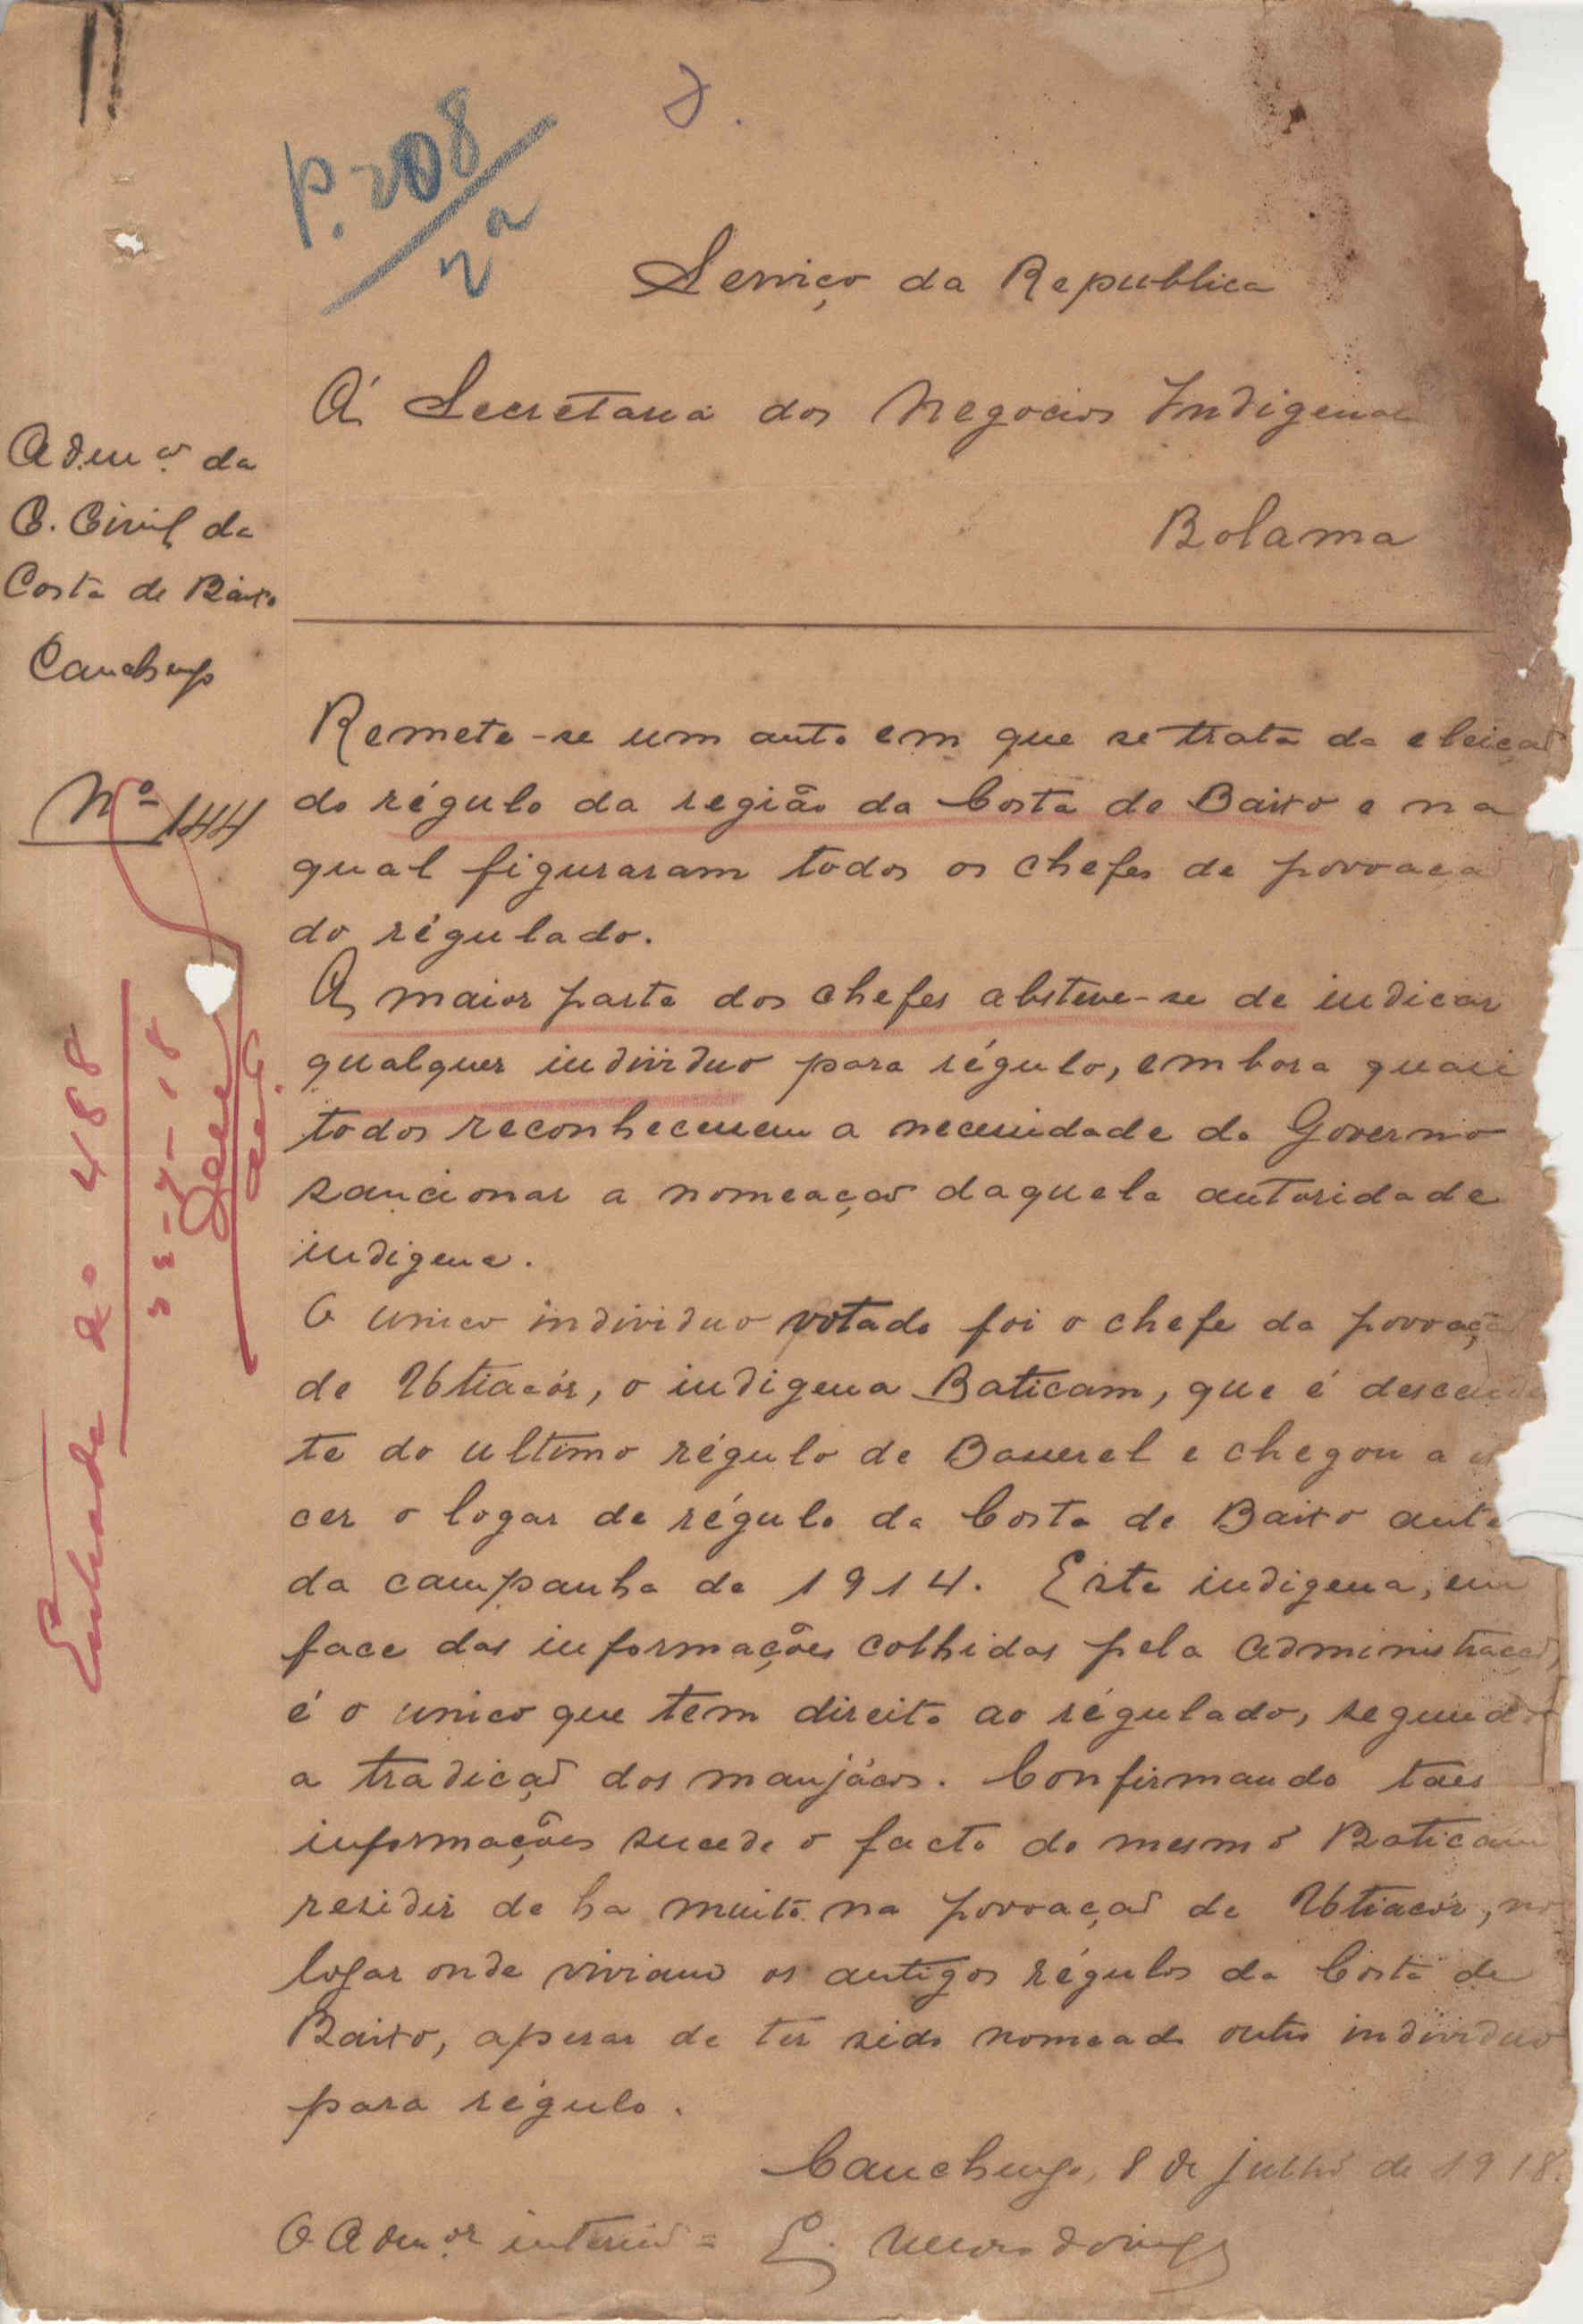 P. 208
2ª
Serviço da Republica
Á Secretaria dos Negocios Indigenas
Bolama
Adm.ᵒʳ da
C. Civil da
Costa de Baixo
Canchungo
Nº 144
Entrada
488
Remete-se um auto em que se trata da eleição
do régulo da região da Costa de Baixo e na
qual figuraram todos os chefes de povoaçã
do régulado.
A maior parte dos chefes absteve-se de indicar
qualquer individuo para régulo, embora quasi
todos reconhecessem a necessidade do Governo
sancionar a nomeação daquela autoridade
indigena.
O unico individuo votado foi o chefe da povoaçã
de Utiacór, o indigena Baticam, que é descende
te do ultimo régulo de Basserel e chegou a
cer o logar de régulo da Costa de Baixo ante
da campanha de 1914. Este indigena, em
face das informações colhidas pela administração,
é o unico que tem direito ao régulado, segundo
a tradição dos manjácos. Confirmando taes
informações sucede o facto do mesmo Baticam
residir de ha muito na povoação de Utiacór, no
logar onde viviam os antigos régulos da Costa de
Baixo, apesar de ter sido nomeado outro individuo
para régulo.
Canchungo, 8 de julho de 1918.
O Adm.ᵒʳ interino =